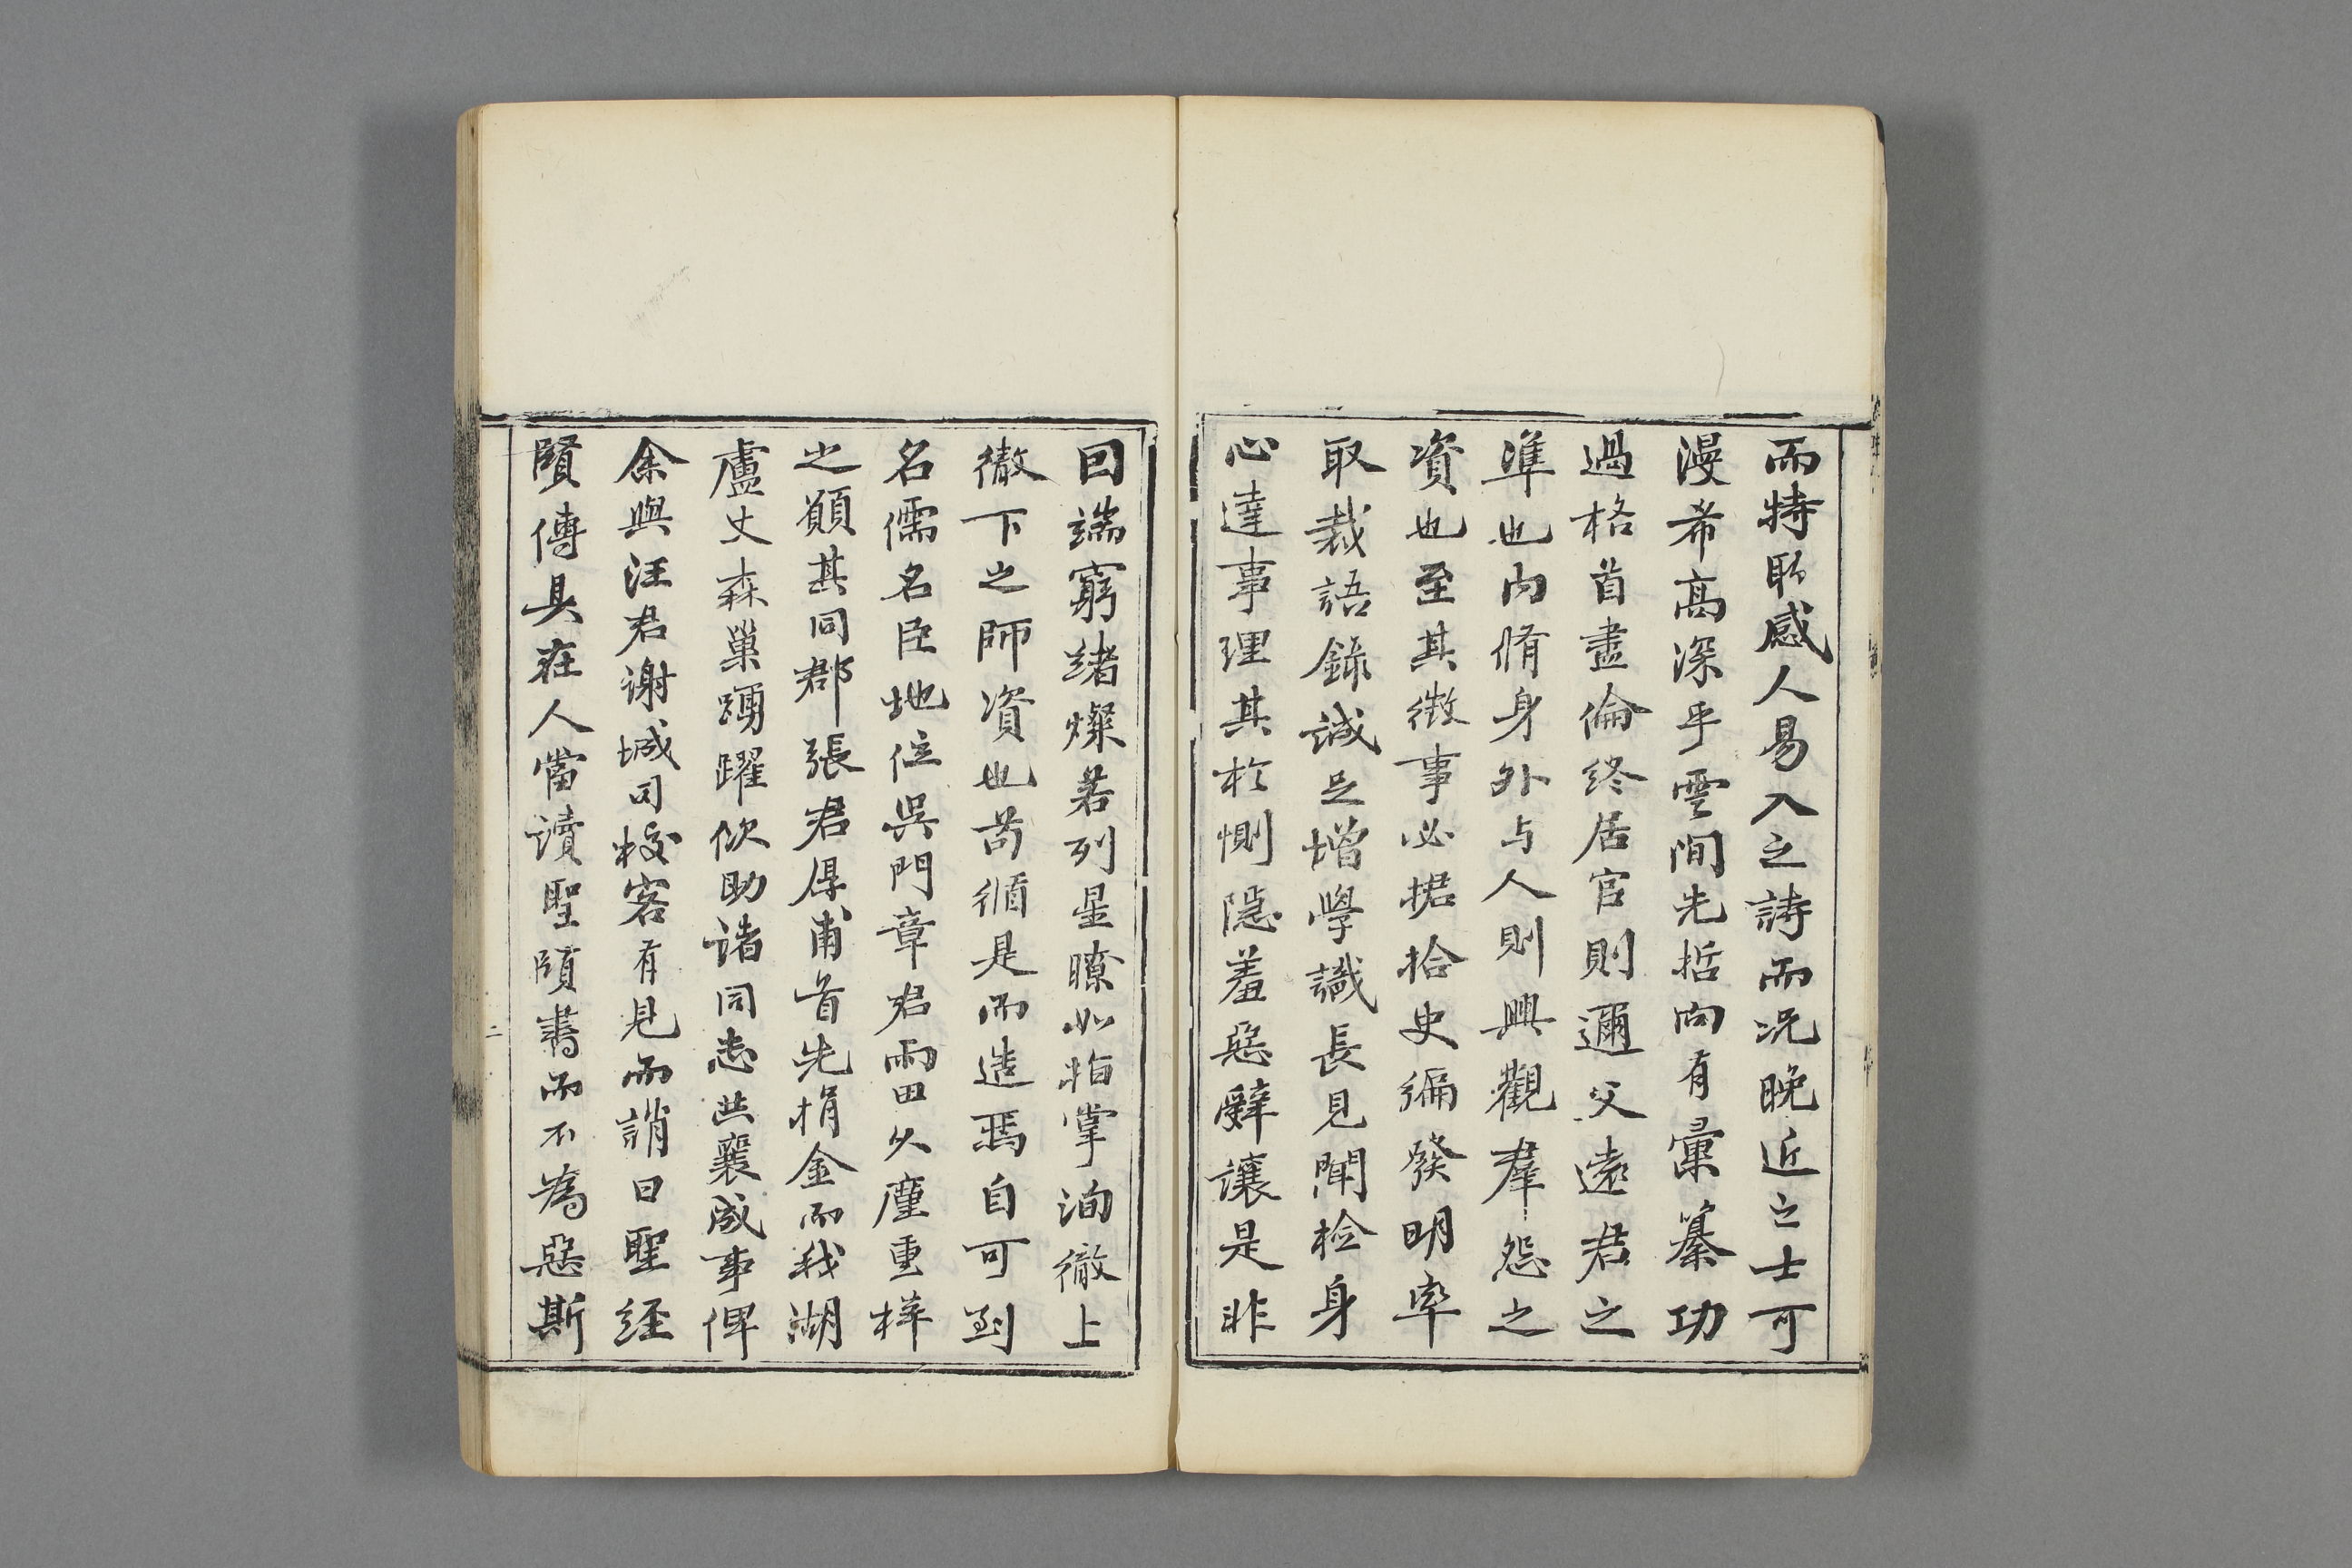 而特取感人易入之詩而况晚近之士可
漫希高深乎雲間先哲向有彙纂功
過格首盡倫終居官則邇父遠君之
準也内脩身外与人則興觀羣怨之
資也至其徴事必捃拾史編發明率
取裁語錄誠足增學識長見聞檢身
心達事理其於惻隱羞惡辭讓是非
回端竆緒燦若列星瞭如指掌洵徹上
徹下之師資也苟循是而造焉自可到
名儒名臣地位吳門章君雨田久廑重梓
之願其同郡張君厚甫首先捐金而我湖
盧丈森巢踴躍佽助諸同志共襄成事俾
余與汪君謝城司校客有見而誚曰聖經
賢傳具在人當讀聖賢書而不為惡斯
二